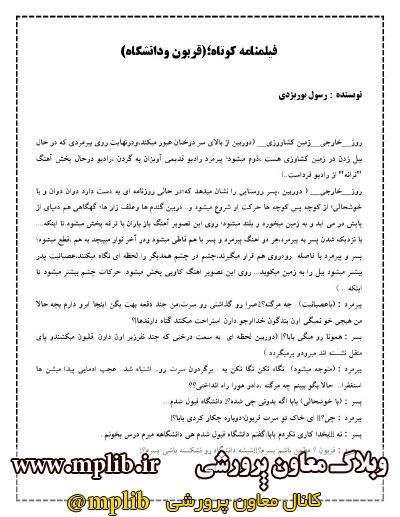 فیلمنامه کوتاه؛(قربون ودانشگاه)
نویسنده : رسول پوریزدی
روز__خارجی__زمین کشاورزی__ (دوربین از بالای سر درختان عبور میکند،ودرنهایت روی پیرمردی که در حال
بیل زدن در زمین کشاورزی هست ،ذوم میشود؛ پیرمرد رادیو قدیمی آویزان به گردن ،رادیو درحال پخش آهنگ
"ترانه" از رادیو فرداست..)
روز__خارجی__ ( دوربین ،پسر روستایی را نشان میدهد که؛در حالی روزنامه ای به دست دارد دوان دوان و با
خوشحالی؛ از کوچه پس کوچه ها حرکت او شروع میشود و.. دربین گندم ها وعلف زار ها؛ گهگاهی هم دمپای از
پایش در می اید و به زمین میخورد و بلند میشود؛ روی این تصویر آهنگ باز باران با ترانه پخش میشود.تا اینکه....
با نزدیک شدن پسر به پیرمرد،هر دو اهنگ پیرمرد و پسر با هم قاطی میشود ودر آخر نوار میپیچد به هم ،قطع میشود؛
پسر و پیرمرد با فاصله رودروی هم قرار میگیرند،چشم در چشم همدیگر را لحظه ای نگاه میکنند،عصبانیت پدر
بیشتر میشود بیل را به زمین میکوید... روی این تصویر اهنگ کابویی پخش میشود. حرکات چشم بیشتر میشود تا
اینکه ..)
پیرمرد : (باعصبانیت).. چه مرگته؟!صرا رو گذاشتی رو سرت،من چند دفعه بهت بگن اینجا ابرو دارم بچه حالا
من هیچی خو نمیگی اون بندگون خدااوجو دارن استراحت میکنند گناه دارندها؟
پسر : همونا رو میگی بابا؟! (دوربین لحظه ای به سمت درختی که چند نفرزیر اون دارن قلیون میکشندو پای
منقل نشسته اند میرودو برمیگردد )
پیرمرد : (متوجه میشود) نگاه نکن نگا نکن به . برگردون سرت رو.. اشتباه شد.. عجب ادمایی پیدا میشن ها
استغفرا.. حالا بگو ببینم چه مرگته ،دادو هورا راه انداختی؟؟
پسر : (با خوشحالی) بابا اگه بدونی چی شده؟! دانشگاه قبول شدم...
پیرمرد : چی؟!! ای خاک تو سرت قربون؛دوباره چکار کردی بابا؟!
پسر : نه !!بخدا کاری نکردم بابا،گفتم دانشگاه قبول شدم هی دانشگاهه میرم درس بخونم .
وبلاگ معاون پرورشی www.mplib.ir
کانال معاون پرورشی @mplib